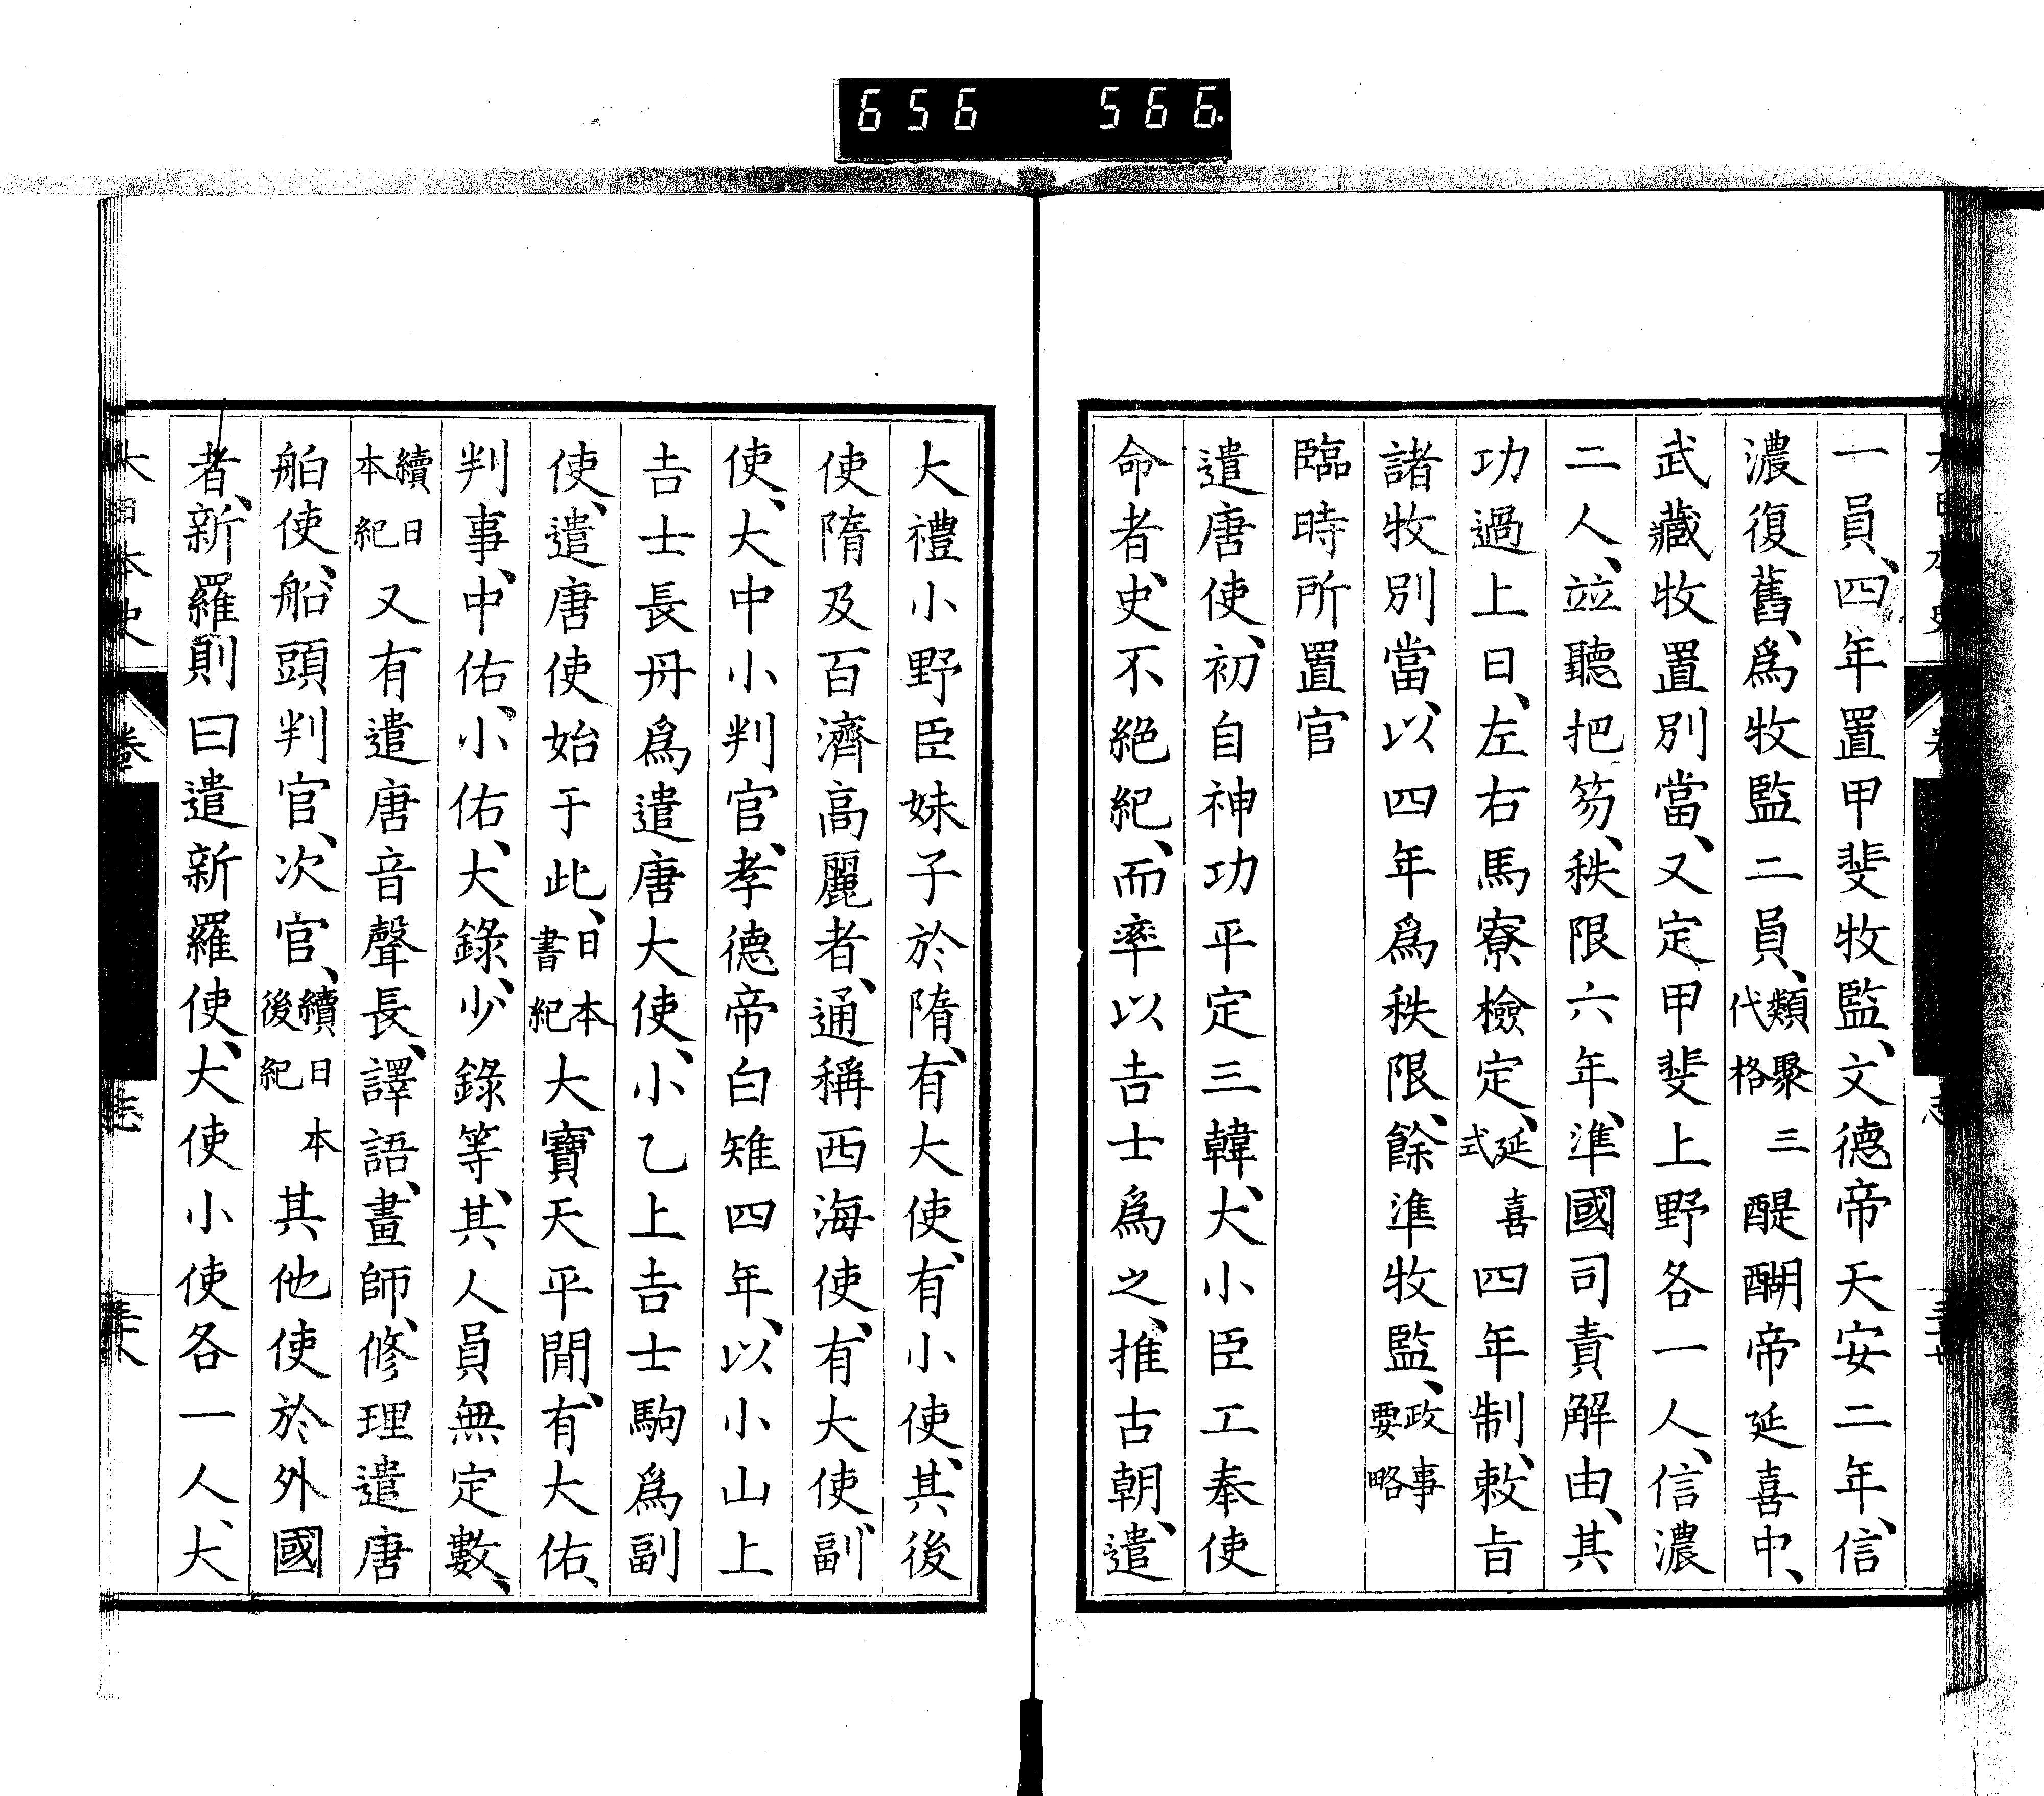 656 566.
一員、四年置甲斐牧監、文德帝天安二年、信
濃復舊、爲牧監二員、類聚三代格醍醐帝延喜中、
武藏牧置別當、又定甲斐上野各一人、信濃
二人、竝聽把笏、秩限六年、準國司責解由、其
功過上日、左右馬寮檢定、延喜式四年制、敕旨
諸牧別當、以四年爲秩限、餘準牧監、政事要略
臨時所置官
遣唐使、初自神功平定三韓、大小臣工奉使
命者、史不絕紀、而率以吉士爲之、推古朝、遣
大禮小野臣妹子於隋、有大使、有小使、其後
使隋及百濟高麗者、通稱西海使、有大使、副
使、大中小判官、孝德帝白雉四年、以小山上
吉士長丹爲遣唐大使、小乙上吉士駒爲副
使、遣唐使始于此、日本書紀大寶天平間、有大佑、
判事、中佑、小佑、大錄、少錄等、其人員無定數、
續日本紀又有遣唐音聲長、譯語、畫師、修理遣唐
舶使、船頭判官、次官、續日本後紀其他使於外國
者、新羅則曰遣新羅使、大使小使各一人、大
大日本史 卷 志